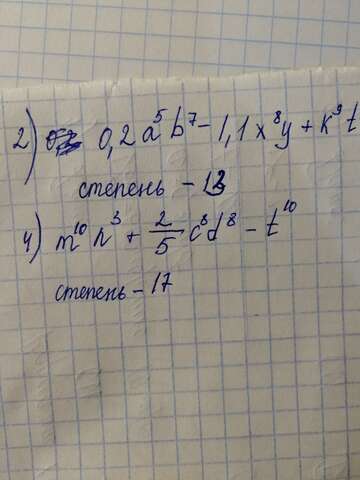 2) 0,2a⁵b⁷ - 1,1x⁸y + k⁹t
степень - 13
4) m¹⁰n³ + 2/5 c⁸d⁸ - t¹⁰
степень - 17